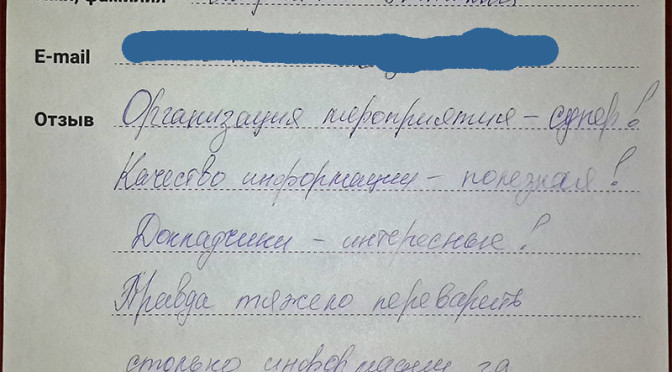 E-mail
Отзыв Организация мероприятия – супер!
Качество информации – полезная!
Докладчики – интересные!
Правда тяжело переварить
столько информации за